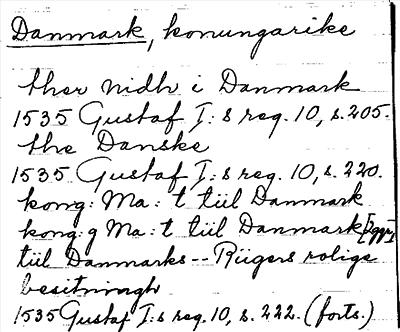 Danmark, konungarike
ther nidh i Danmark
1535 Gustaf I:s reg. 10, s. 205.
the Danske
1535 Gustaf I:s reg. 10, s. 220.
kong: Ma: t tiil Danmark
kong: g Ma: t tiil Danmark
tiil Danmarks -- Rügers rolige
besitningh
1535 Gustaf I:s reg. 10, s. 222. (forts.)